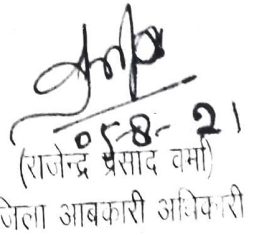 05-8-21
(राजेन्द्र प्रसाद वर्मा)
जिला आबकारी अधिकारी